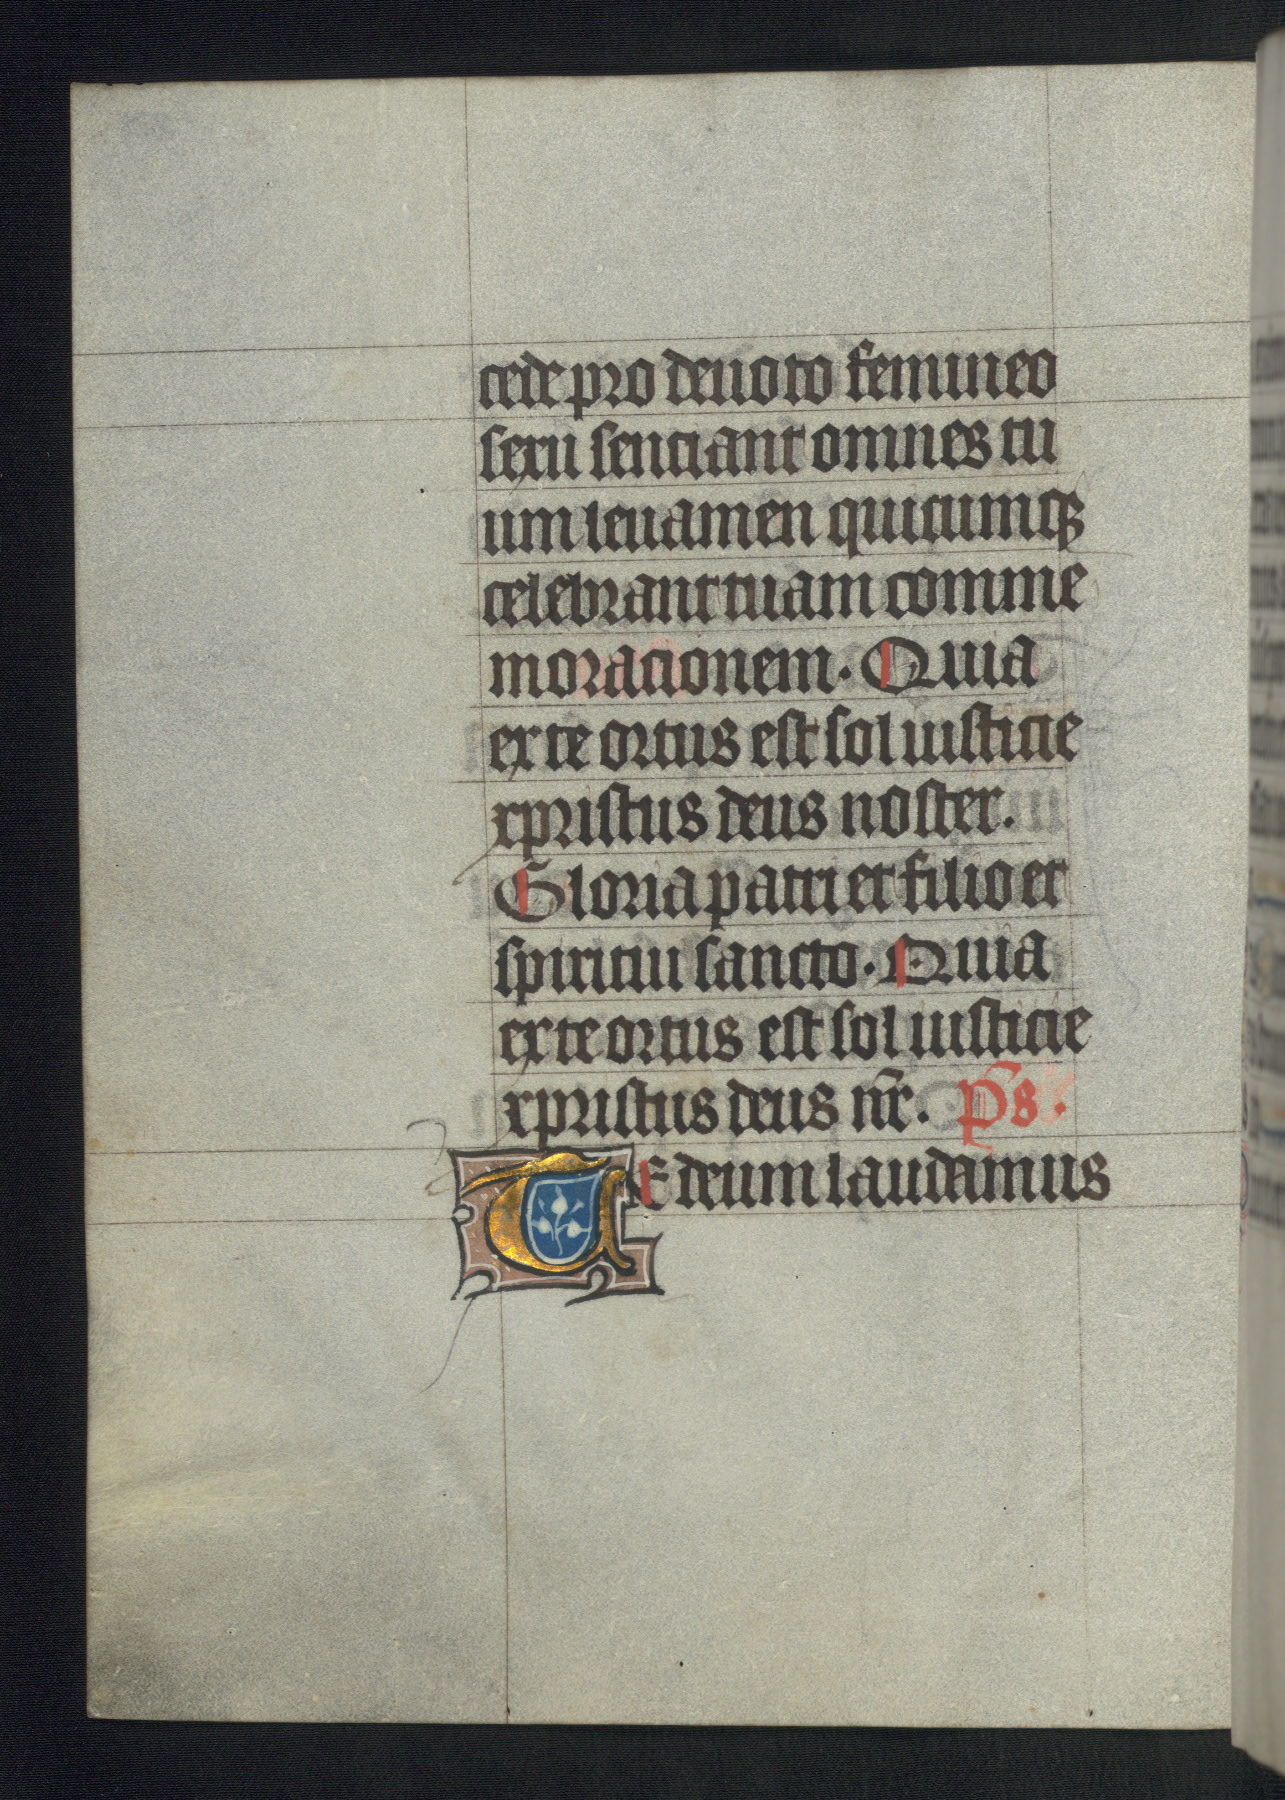 cede pro deuoto femineo
sexu senciant omnes tu
um leuamen quicumqȝ
celebrant tuam comme
moracionem. Quia
ex te ortus est sol iusticie
xpristus deus noster.
Gloria patri et filio et
spiritui sancto. Quia
ex te ortus est sol iusticie
xpristus deus nr̄. ps̄.
TE deum laudamus